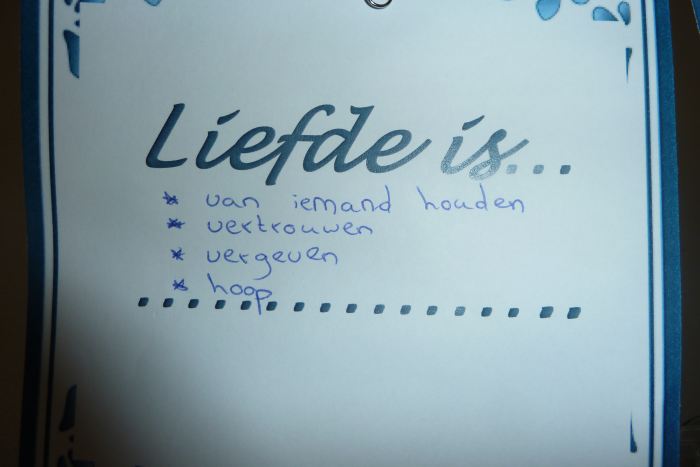 Liefde is...
* van iemand houden
* vertrouwen
* vergeven
* hoop